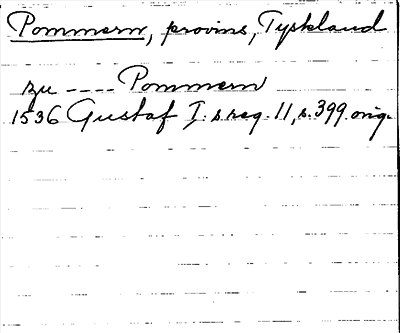 Pommern, provins, Tyskland
zu ---- Pommern
1536 Gustaf I:s reg. 11, s. 399. orig.